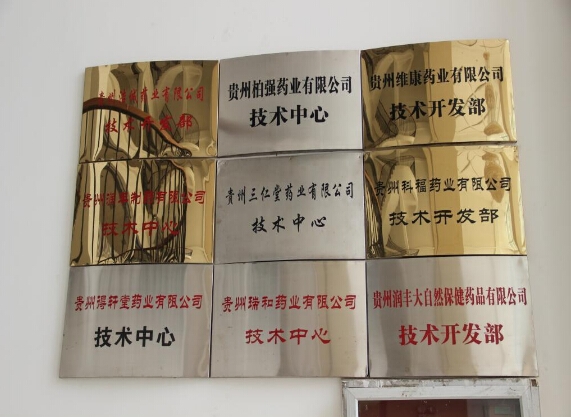 贵州
药业有限公司
技术开发部
贵州柏强药业有限公司
技术中心
贵州维康药业有限公司
技术开发部
贵州
制药有限公司
技术中心
贵州三仁堂药业有限公司
技术中心
贵州科福药业有限公司
技术开发部
贵州得轩堂药业有限公司
技术中心
贵州瑞和药业有限公司
技术中心
贵州润丰大自然保健药品有限公司
技术开发部